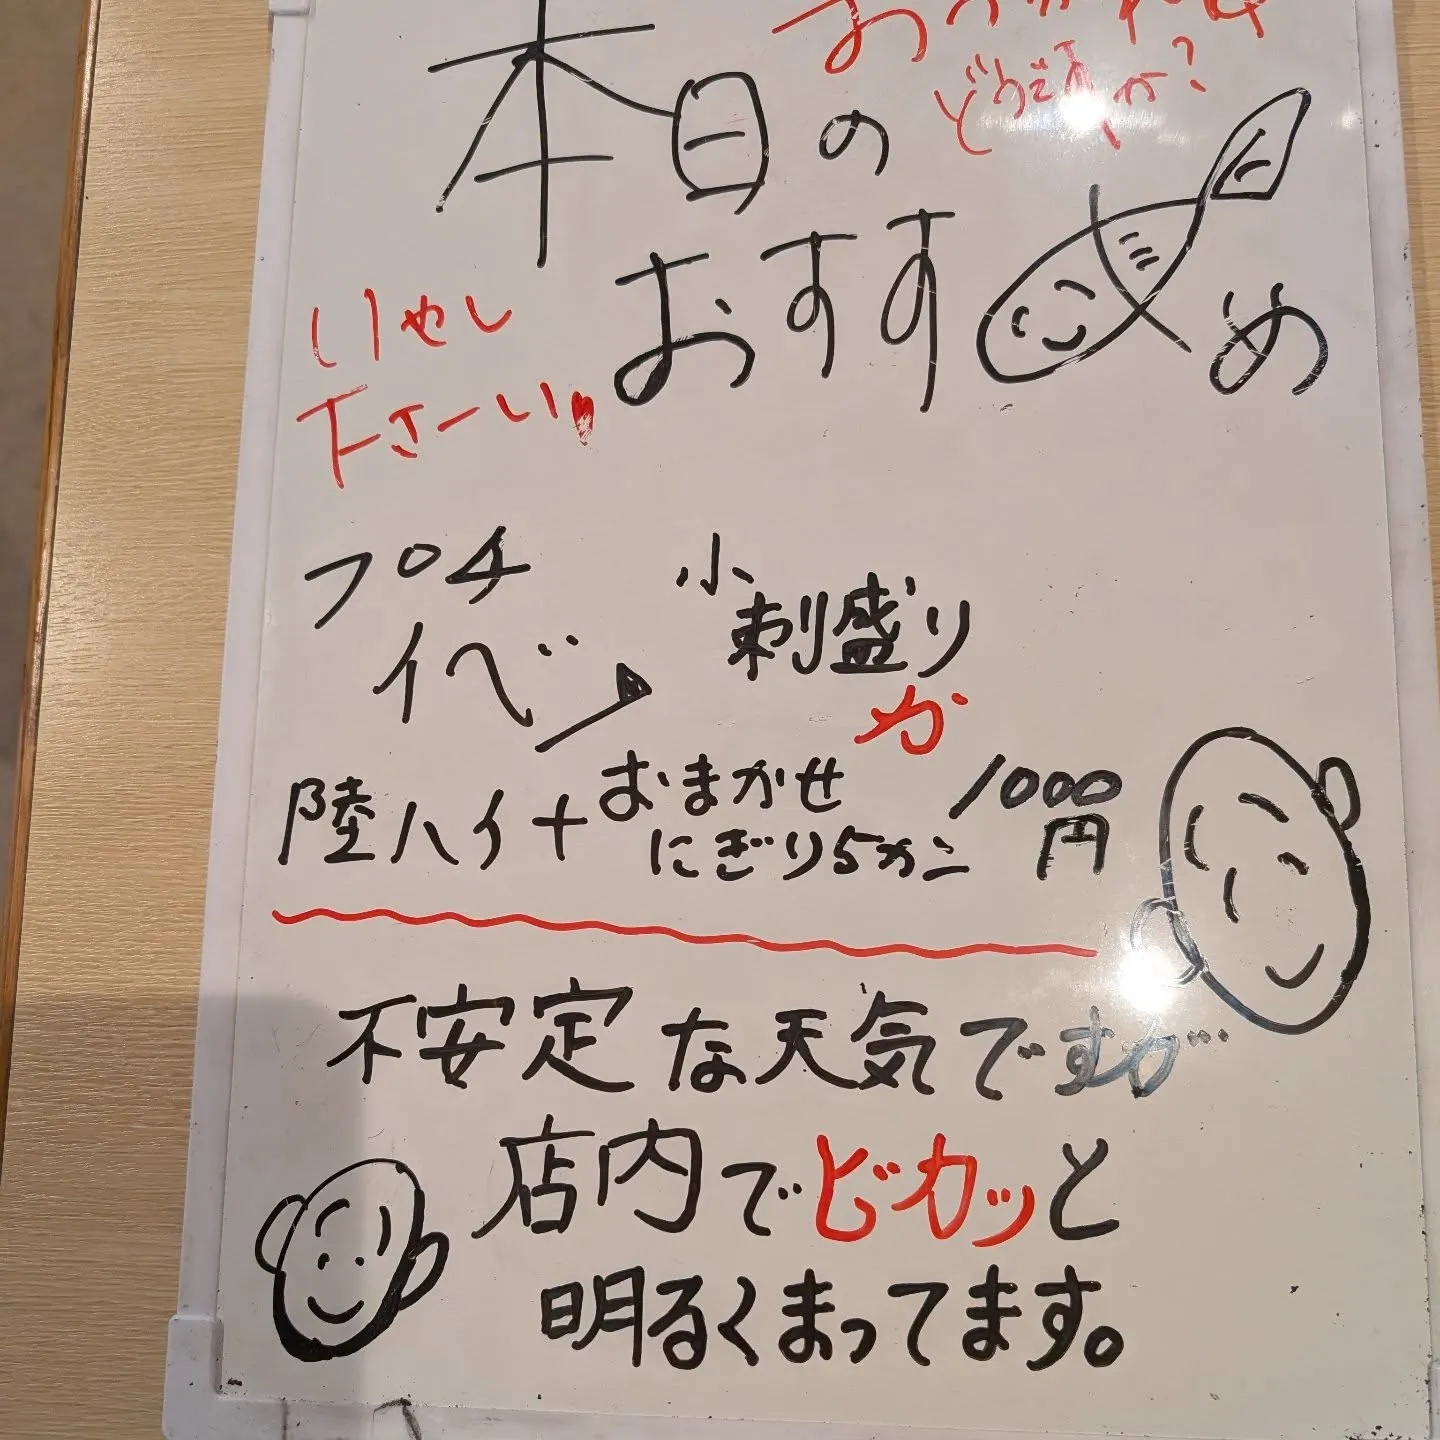 本日の
どうですか?
おすすめ
いやし
下さーい
プチ
イベント
小
刺盛り
か
陸ハイ+おまかせ
にぎり5カン
1000
円
不安定な天気ですが…
店内でピカッと
明るくまってます。